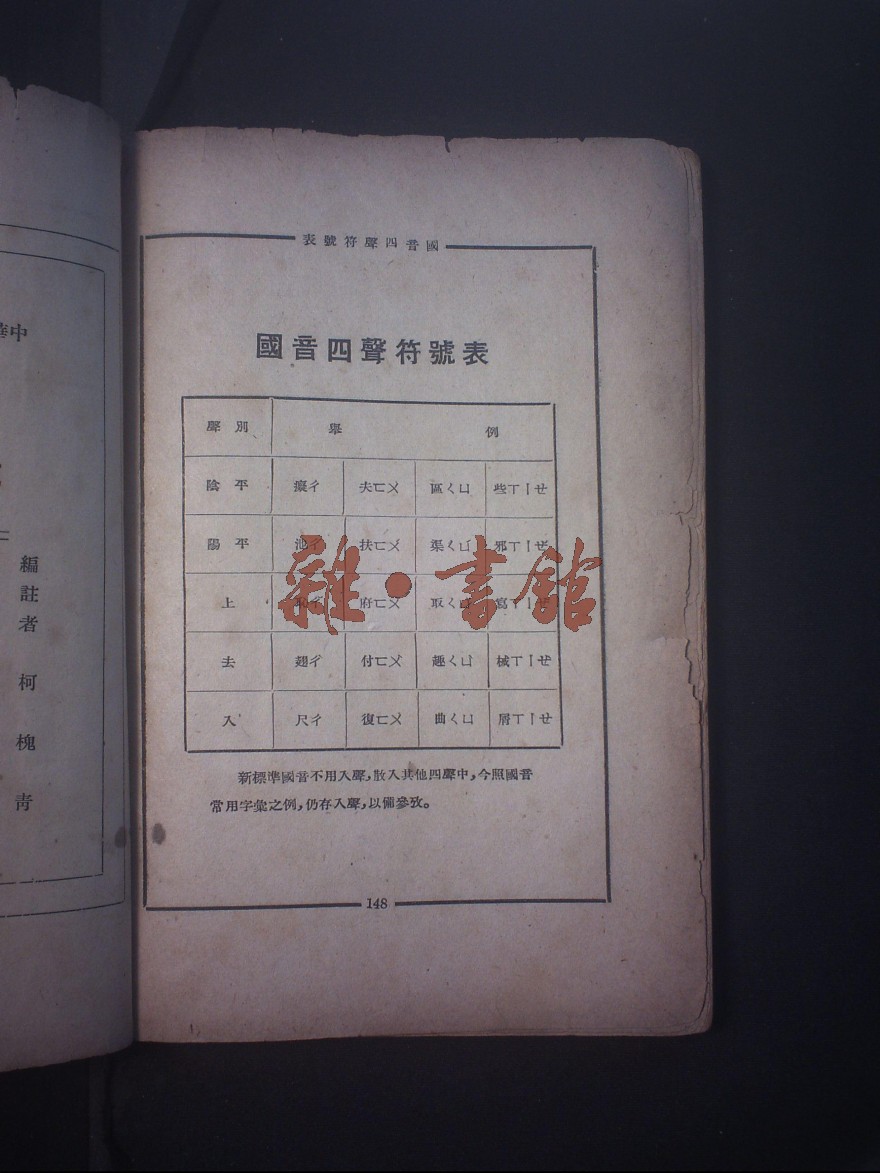 表號符聲四音國
國音四聲符號表
聲別 舉例
陰平 癡ㄔ 夫ㄈㄨ 區ㄑㄩ 些ㄒㄧㄝ
陽平 池ㄔ 扶ㄈㄨ 渠ㄑㄩ 邪ㄒㄧㄝ
上 恥ㄔ 府ㄈㄨ 取ㄑㄩ 寫ㄒㄧㄝ
去 翅ㄔ 付ㄈㄨ 趣ㄑㄩ 械ㄒㄧㄝ
入 尺ㄔ 復ㄈㄨ 曲ㄑㄩ 屑ㄒㄧㄝ
新標準國音不用入聲，散入其他四聲中，今照國音
常用字彙之例，仍存入聲，以備參攷。
148
雜·書館
編註者 柯槐青